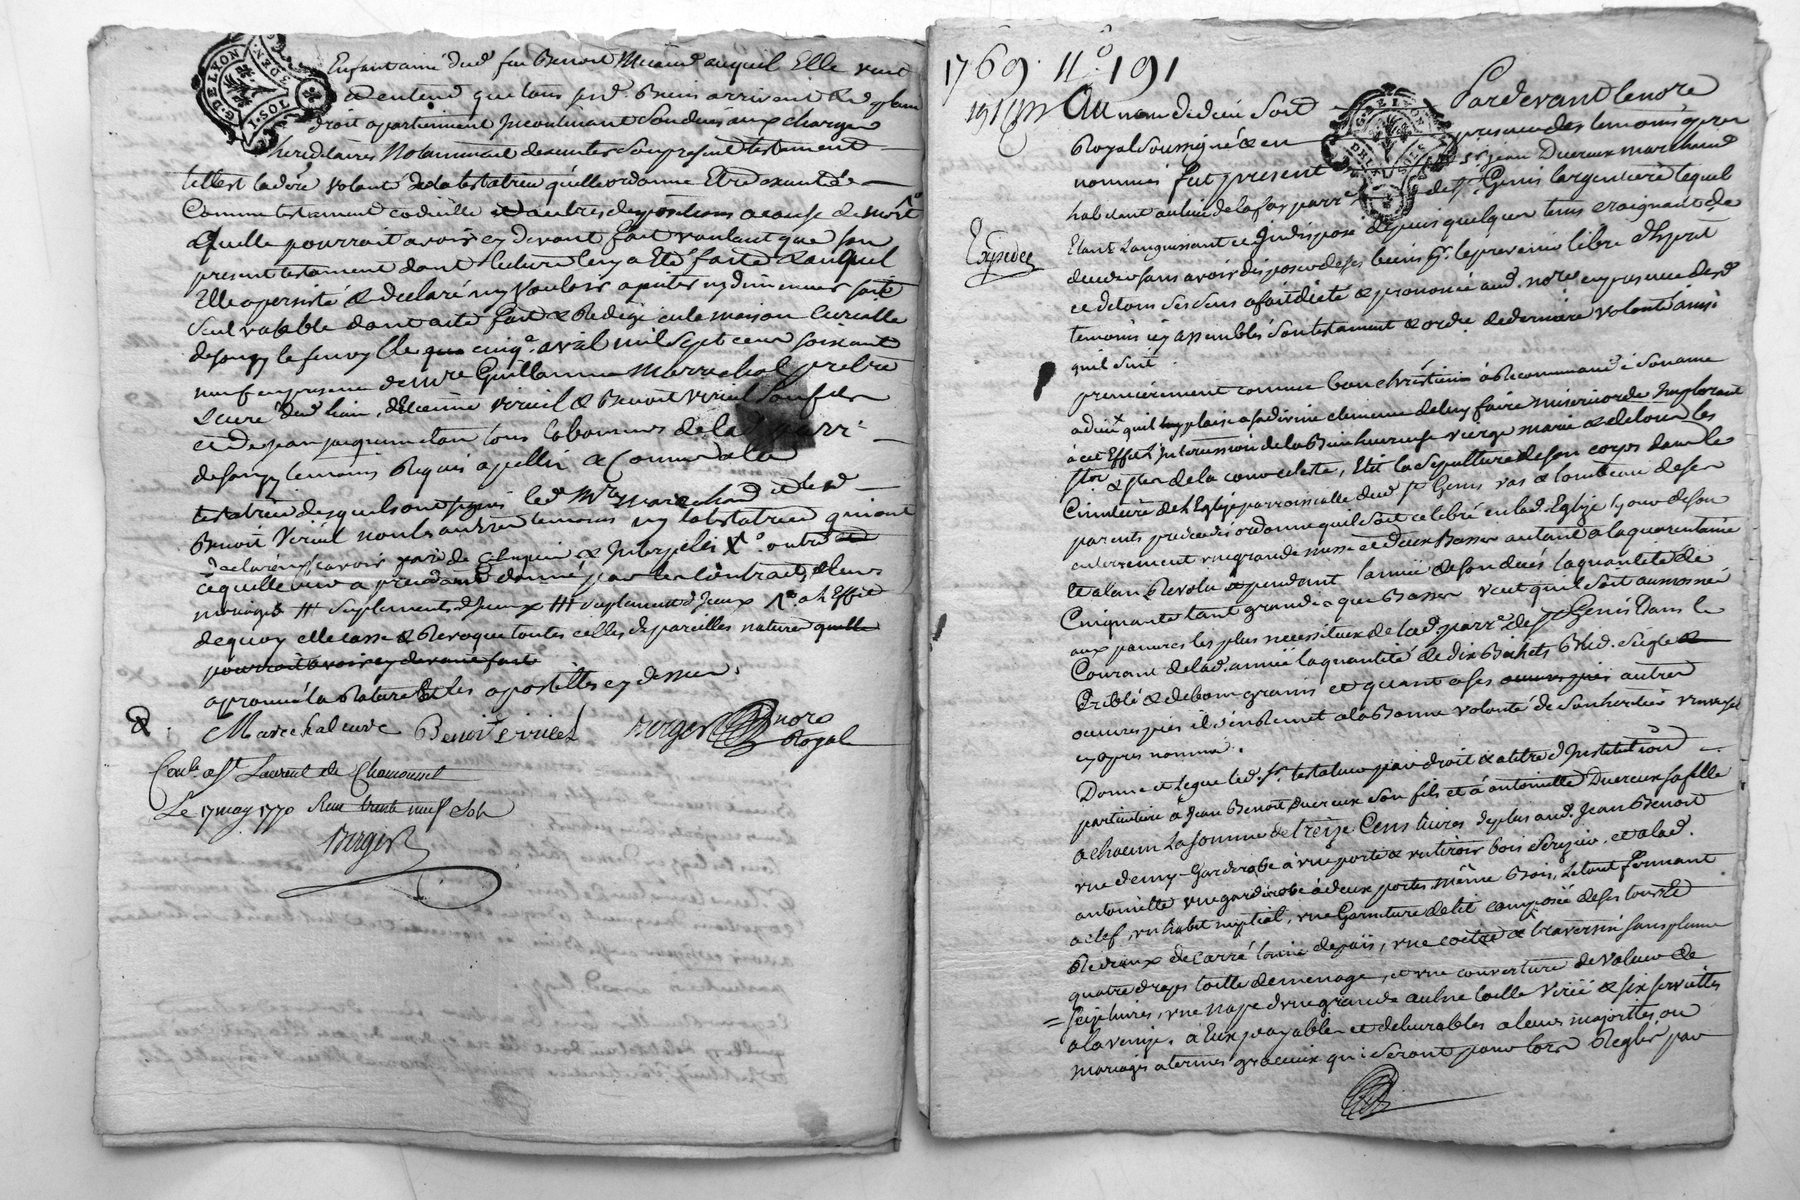 G. DE LYON
SOL
Enfant ainé dud. feu Benoit auquel Elle veut
et entend que tous sesd. Biens arrivent & de plein
droit apartiennent Incontinant Son deces aux charges
hereditaires Notamment dexecuter Son present testament
telle est la dere volonté de la testatrice qu'elle ordonne Etre executée
Comme testament codicille et autres dispositions a cause de mort
qu'elle pourrait avoir cy devant fait voulant que son
present testament dont lecture luy a Eté faite & auquel
Elle a persisté & declaré ny vouloir ajouter ny diminuer soit
Seul valable dont acte fait & Redigé en la maison curialle
de le cinq. avril mil Sept cent soixante
neuf en presence de mre Guillaume Marrechal prêtre
& curé dud. lieu, d'Etienne Virieil & Benoit Viriel Son fils
et de jean tous laboureurs de la parr.
de temoins Requis apellés & Connus
testatrice desquels ont signés led. Mre Marrechal et led.
Benoit Viriel non les autres temoins ny la testatrice qui ont
declaré ne sçavoir de ce Enquis & Interpellés X outre
ce quelle leur a donné par les Contrats de leurs
mariages # suplements d'Iceux # suplement d'Iceux a l'Effet
de quoy elle casse & Revoque toutes celles de pareilles natures quelle
pourrait avoir cy devant faite
aprouvé la Rature & les apostilles cy dessus.
Marrechal curé Benoit Viriel Berger nore
Royal
Conlé a St Laurent de Chamousset
Le 17 may 1770 Reçu trente neuf sols
Berger
1769. 11.o 191
191 Au nom de dieu Soit Pardevant le nore
Royal Soussigné & en presence des temoins apres
nommés fut present sr jean Ducreux marchand
habitant au lieu de la fay parr. de St Genis l'argentiere lequel
Expediée
Etant Languissant & Indisposé depuis quelque tems craignant de
deceder sans avoir disposé de ses biens libre d'Esprit
et de tous ses sens a fait dicté & prononcé aud. nore en presence desd.
temoins icy assemblés Son testament & ordre de derniere volonté ainsi
qu'il suit.
premièrement comme bon chrétien à Recommandé Son ame
a dieu qu'il luy plaise a sa divine clemence de luy faire misericorde Implorant
à cet Effet l'Intercession de la Bienheureuse vierge marie & de tous les
Sts & stes de la cour celeste, Elit la Sepulture de son corps dans le
Cimetière de l'Eglise parroissialle dud. St Genis vas & tombeau de ses
parents predecedés ordonne qu'il soit celebré en lad. Eglise jour de son
enterrement une grande messe et deux Basses autant a la quarantaine
Et a l'an Revolu & pendant l'année de son decés la quantité de
Cinquante tant grandes que Basses veut qu'il Soit aumosné
aux pauvres les plus necessiteux de lad. parr. de St Genis Dans le
Courant de lad. année la quantité de dix Bichets Bled Seigle
Criblé & de bons grains et quant a ses autres
œuvres pies il s'en Remet a la Bonne volonté de Son heritier universel
cy après nommé.
Donne et Legue led. sr testateur par droit & a titre d'Institution
particuliere a Jean Benoit Ducreux Son fils et à antoinette Ducreux sa fille
a chacun La somme de treize Cens livres de plus aud. Jean Benoit
une demy Garderobe à une porte & un tiroir bois Serizier, et a lad.
antoinette une garderobe à deux portes même Bois, Le tout fermant
a clef, un habit nuptial, une Garniture de lit composée de ses tour de
Rideaux de carré une coëtre & traversin sans plume
quatre draps toille de menage, et une couverture de valeur de
Seize livres, une nape d'une grande aulne toille & six serviettes
a la venize, à Eux payables et delivrables a leurs majorités ou
mariages a termes gracieux qui Seront pour lors Reglés par